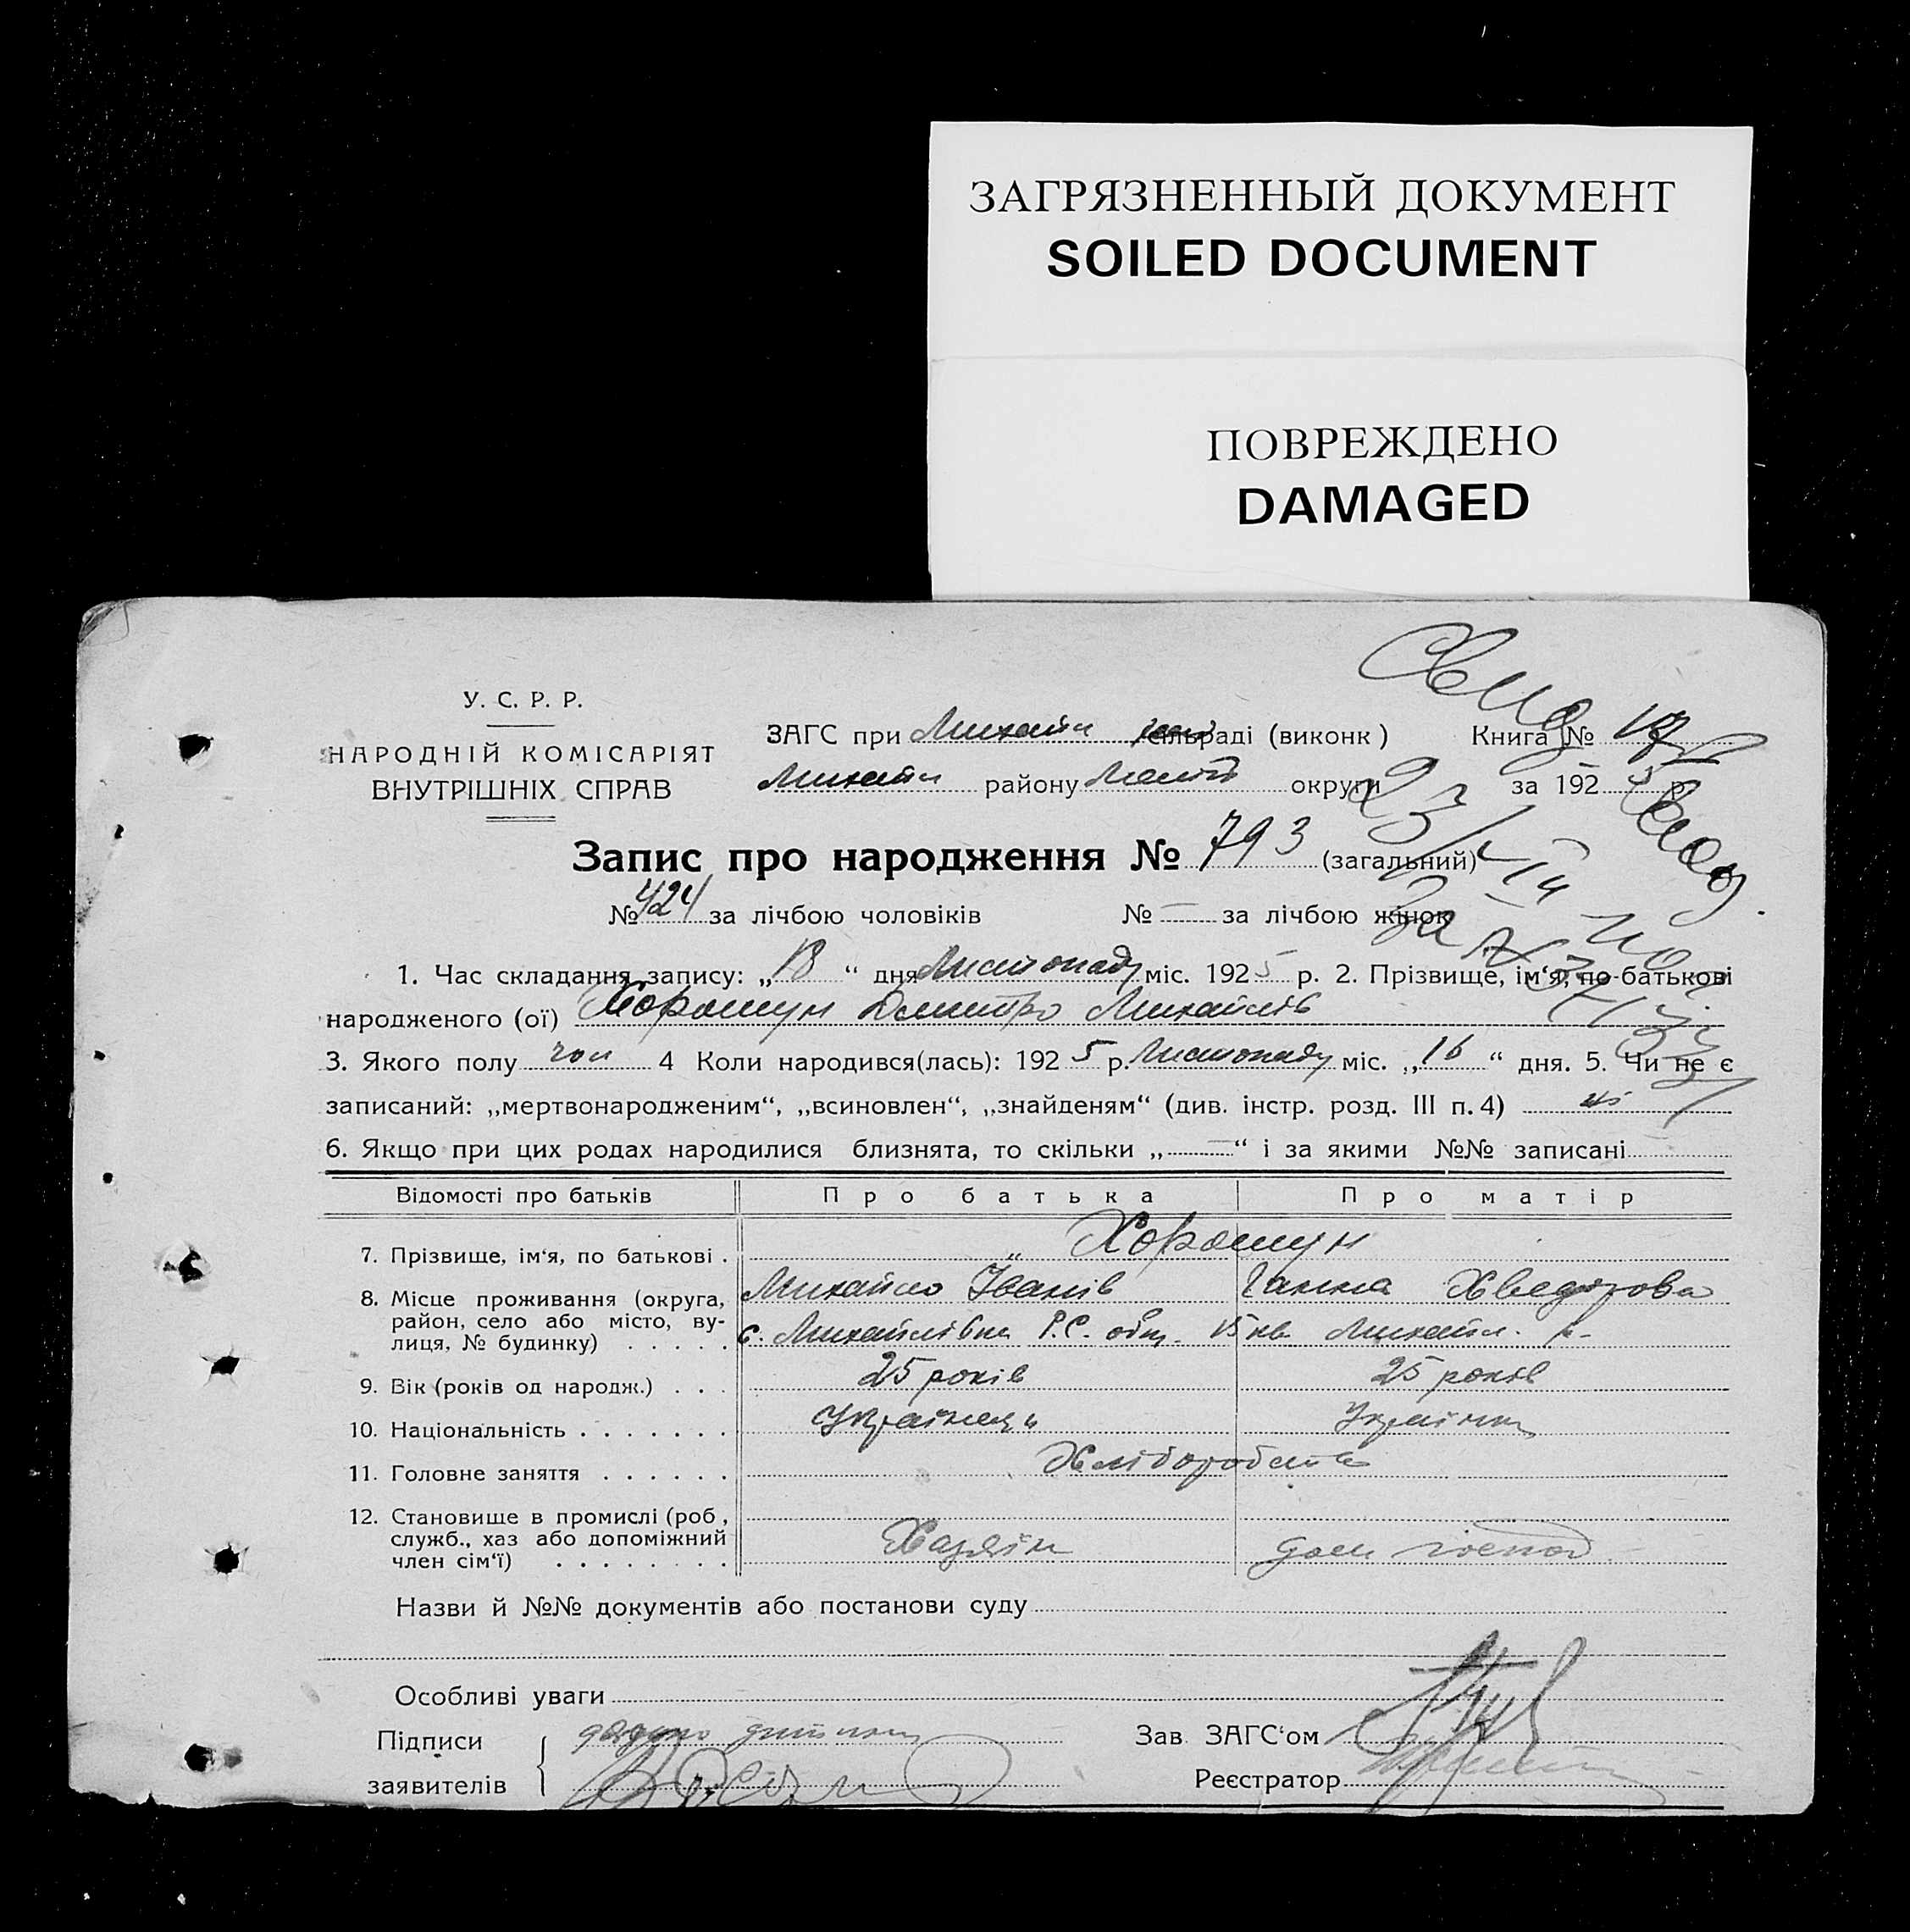 ЗАГРЯЗНЕННЫЙ ДОКУМЕНТ
SOILED DOCUMENT
ПОВРЕЖДЕНО
DAMAGED
У. С. Р. Р.
НАРОДНІЙ КОМІСАРІЯТ
ВНУТРІШНІХ СПРАВ
ЗАГС при Михайл сільраді (виконк) Книга №
Михайл району округи за 1925 р.
Запис про народження № 793 (загальний)
№ 424 за лічбою чоловіків № — за лічбою жінок
1. Час складання запису: „18“ дня Листопаду міс. 1925 р. 2. Прізвище, ім'я, по-батькові
народженого (ої) Хорошун Дмитро Михайлів
3. Якого полу чол 4 Коли народився(лась): 1925 р. Листопаду міс. „16“ дня. 5. Чи не є
записаний: „мертвонародженим“, „всиновлен“, „знайденям“ (див. інстр. розд. III п. 4) ні
6. Якщо при цих родах народилися близнята, то скільки „—“ і за якими №№ записані
Відомості про батьків Про батька Про матір
7. Прізвище, ім'я, по батькові . „ Хорошун
Михайло Іванів Ганна Хведорова
8. Місце проживання (округа, район, село або місто, вулиця, № будинку) . . . . . с. Михайлівка Р.С. общ. 15 кв. Михайл. р.
9. Вік (років од народж.) . . . 25 років 25 років
10. Національність . . . . . . . Українець Українка
11. Головне заняття . . . . . . Хліборобство
12. Становище в промислі (роб,
служб., хаз або допоміжний
член сім'ї) . . . . . . . . Хазяїн дом господ
Назви й №№ документів або постанови суду
Особливі уваги
Підписи
заявителів
Зав ЗАГС'ом
Реєстратор